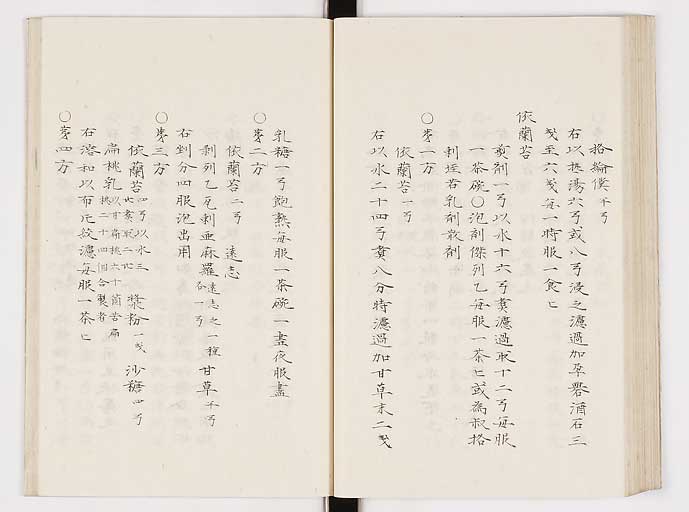 格綸僕 半弓
右以熱湯六弓或八弓浸之濾過加孕礬酒石三
戔至六戔每一時服一食匕
依蘭苔
煎劑一弓以水十六弓煮濾過取十二弓每服
一茶碗〇泡劑傑列乙每服一茶匕或為叔格
刺垤若乳劑散劑
〇第一方
依蘭苔一弓
右以水二十四弓煮八分時濾過加甘草末二戔
乳糖一弓飽熱每服一茶碗一晝夜服盡
〇第二方
依蘭苔二弓 遠志
剥列乙瓦剥亜麻羅遠志之一種各一弓 甘草半弓
右剉分四服泡出用
〇第三方
依蘭苔四弓以水三 漿粉一戔 沙糖四弓
扁桃乳以甘扁桃六十箇苦扁桃二十四個合製者
右溶和以布片絞濾每服一茶匕
〇第四方